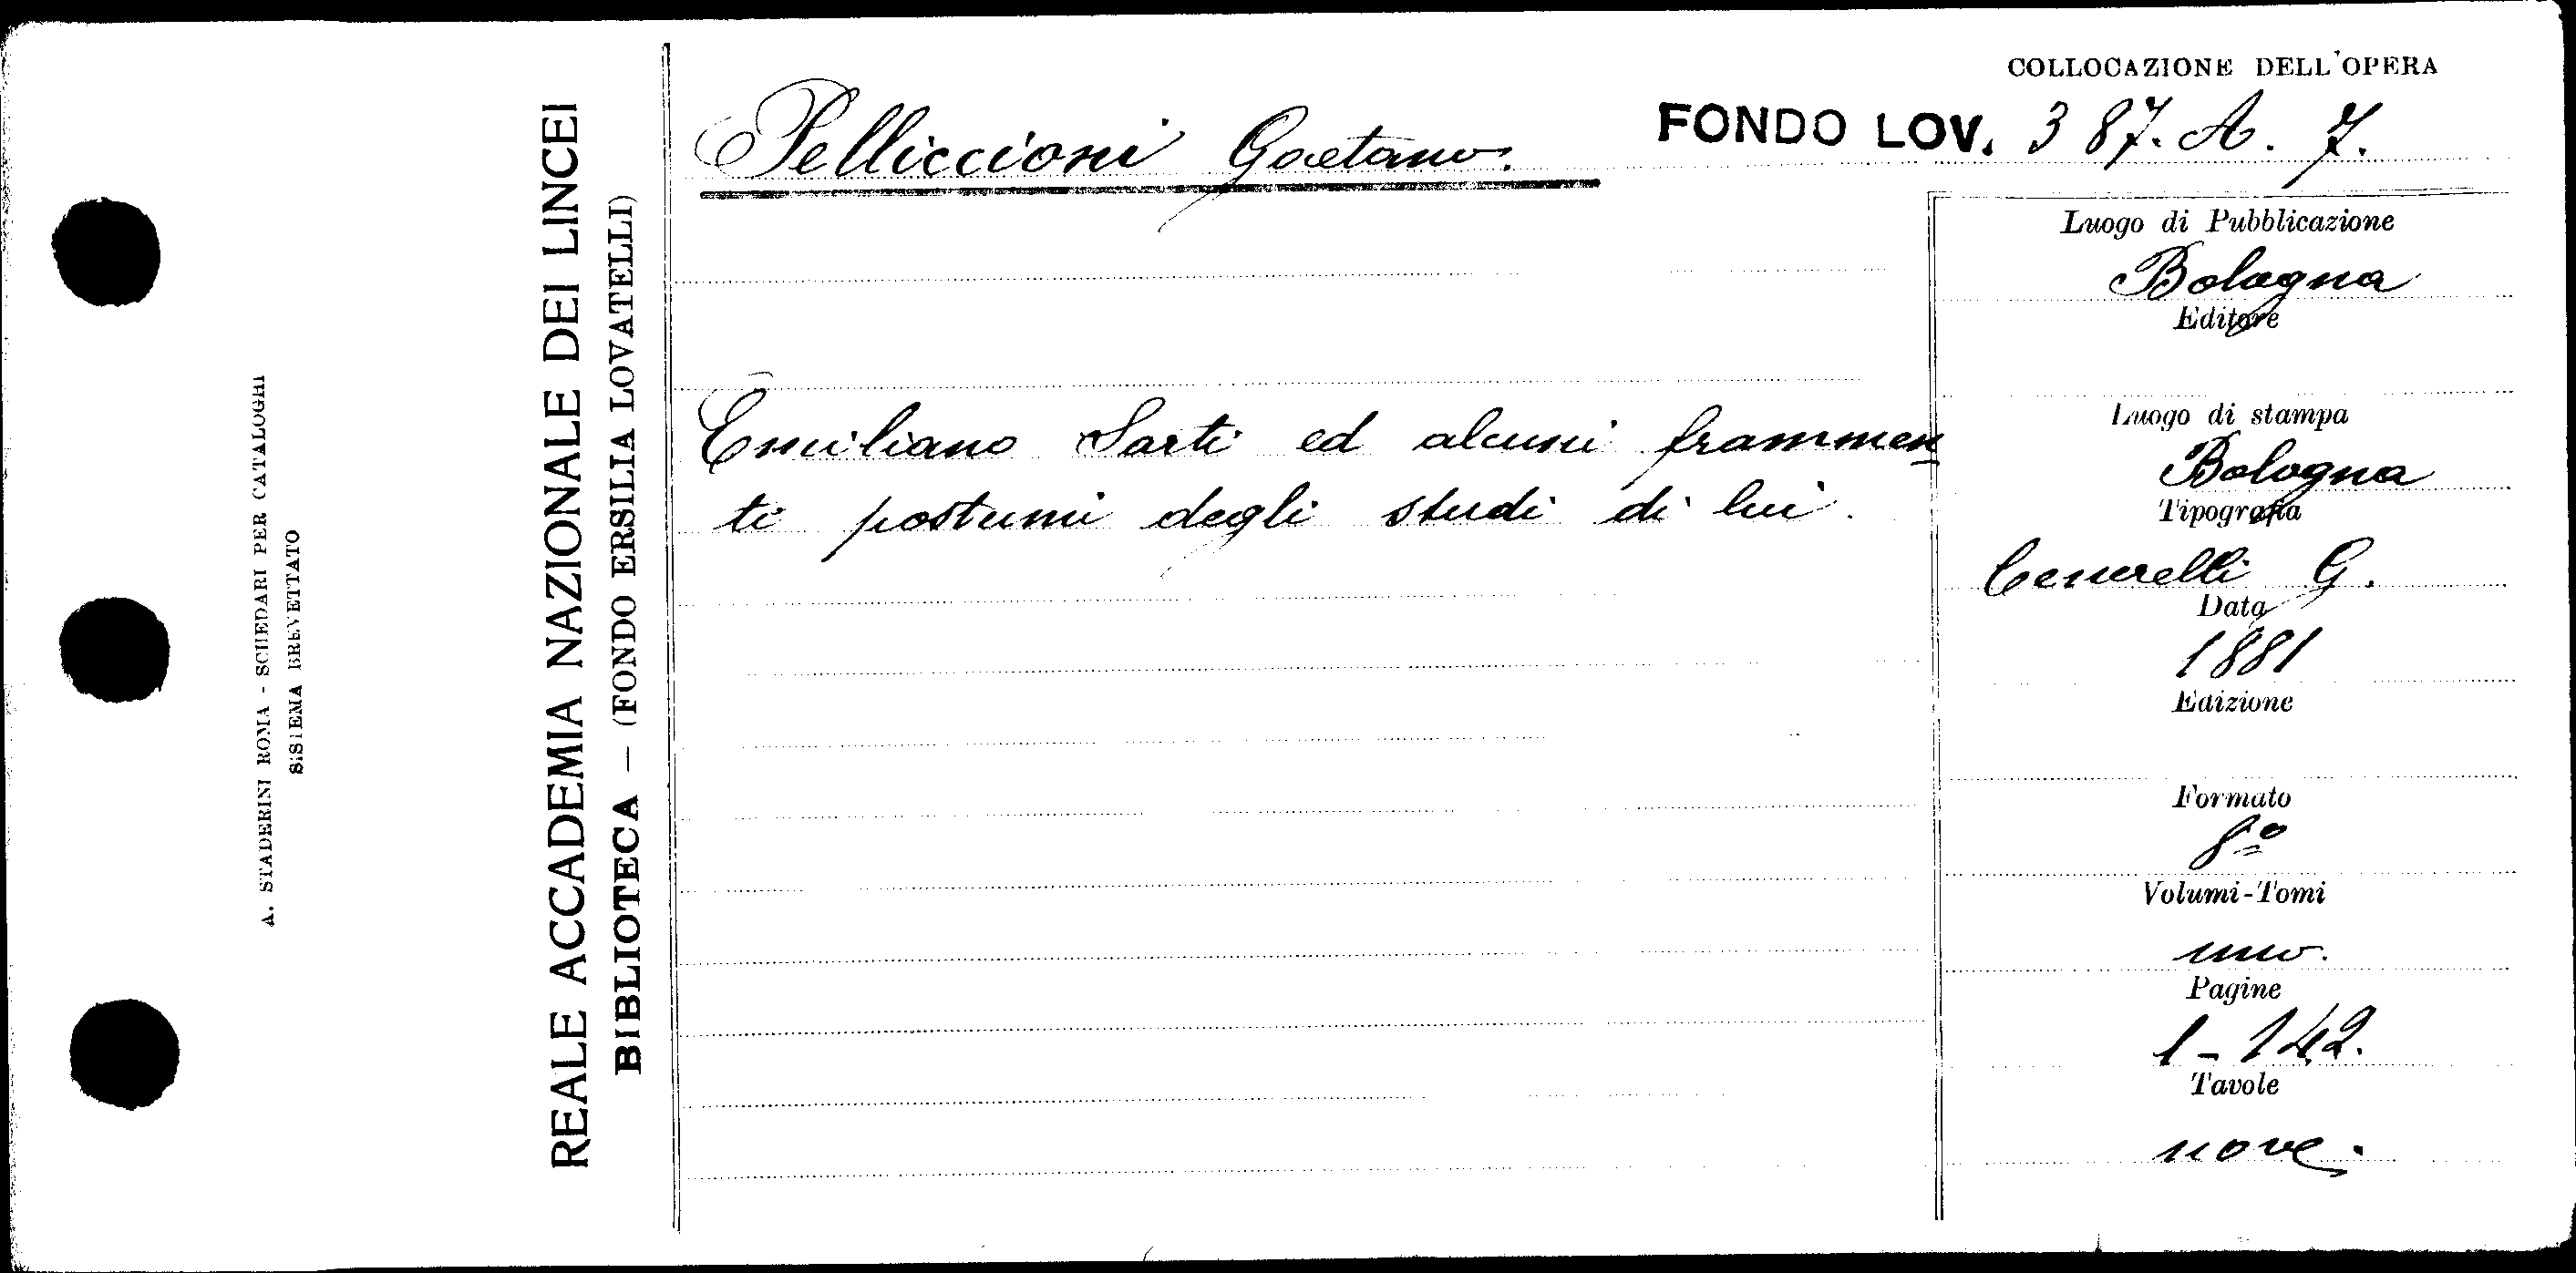 A. STADERINI ROMA - SCHEDARI PER CATALOGHI
SISTEMA BREVETTATO
REALE ACCADEMIA NAZIONALE DEI LINCEI
BIBLIOTECA — (FONDO ERSILIA LOVATELLI)
COLLOCAZIONE DELL'OPERA
FONDO LOV. 387. A. 7.
Pelliccioni Gaetano.
Emiliano Sarti ed alcuni frammen
ti postumi degli studi di lui.
Luogo di Pubblicazione
Bologna
Editore
Luogo di stampa
Bologna
Tipografia
Cenerelli G.
Data
1881
Edizione
Formato
8º
Volumi-Tomi
uno.
Pagine
1-142.
Tavole
nove.